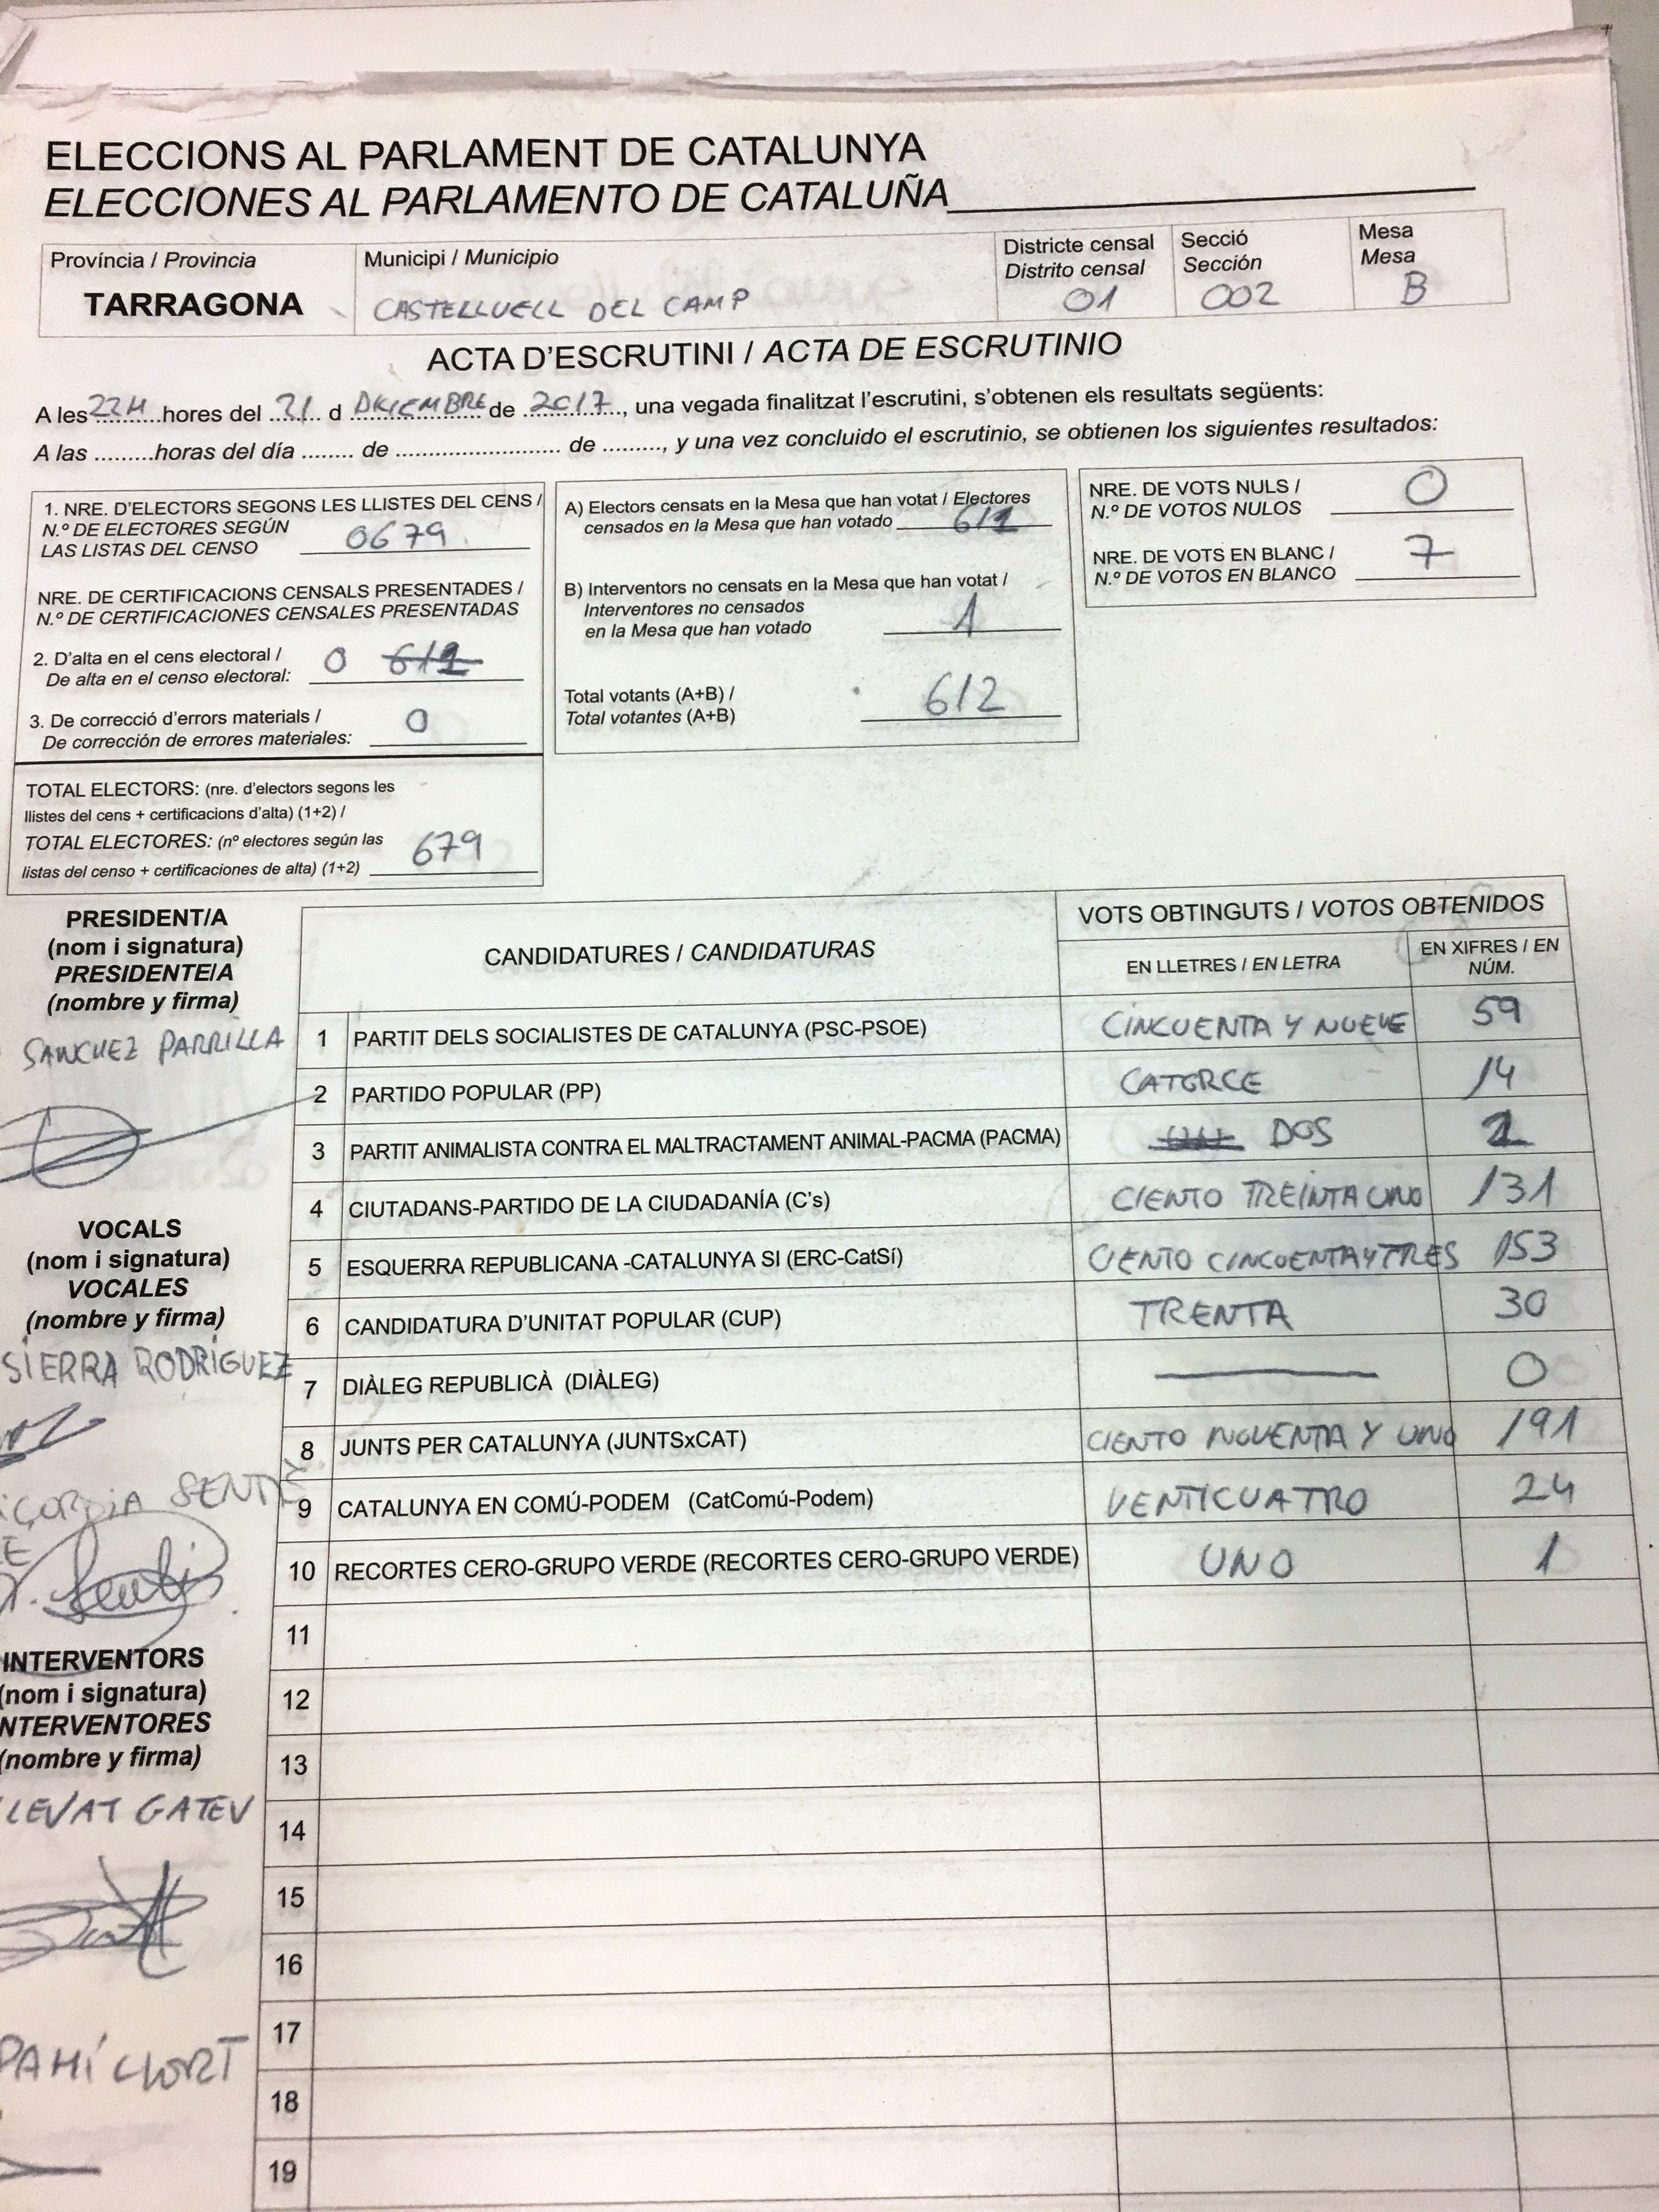 ELECCIONS AL PARLAMENT DE CATALUNYA
ELECCIONES AL PARLAMENTO DE CATALUÑA
Província / Provincia
TARRAGONA
Municipi / Municipio
CASTELLVELL DEL CAMP
Districte censal
Distrito censal
01
Secció
Sección
002
Mesa
Mesa
B
ACTA D'ESCRUTINI / ACTA DE ESCRUTINIO
A les 22H hores del 21 d DICIEMBRE de 2017, una vegada finalitzat l'escrutini, s'obtenen els resultats següents:
A las .........horas del día ........ de ........................ de ........., y una vez concluido el escrutinio, se obtienen los siguientes resultados:
1. NRE. D'ELECTORS SEGONS LES LLISTES DEL CENS /
N.º DE ELECTORES SEGÚN
LAS LISTAS DEL CENSO 0679
NRE. DE CERTIFICACIONS CENSALS PRESENTADES /
N.º DE CERTIFICACIONES CENSALES PRESENTADAS
2. D'alta en el cens electoral /
De alta en el censo electoral: 0 611
3. De correcció d'errors materials /
De corrección de errores materiales: 0
TOTAL ELECTORS: (nre. d'electors segons les
llistes del cens + certificacions d'alta) (1+2) /
TOTAL ELECTORES: (nº electores según las
listas del censo + certificaciones de alta) (1+2) 679
A) Electors censats en la Mesa que han votat / Electores
censados en la Mesa que han votado 611
B) Interventors no censats en la Mesa que han votat /
Interventores no censados
en la Mesa que han votado 1
Total votants (A+B) /
Total votantes (A+B) 612
NRE. DE VOTS NULS /
N.º DE VOTOS NULOS 0
NRE. DE VOTS EN BLANC /
N.º DE VOTOS EN BLANCO 7
PRESIDENT/A
(nom i signatura)
PRESIDENTE/A
(nombre y firma)
SANCHEZ PARRILLA
VOCALS
(nom i signatura)
VOCALES
(nombre y firma)
SIERRA RODRÍGUEZ
INTERVENTORS
(nom i signatura)
INTERVENTORES
(nombre y firma)
LLEVAT GATEV
PAMÍ LLORT
CANDIDATURES / CANDIDATURAS
VOTS OBTINGUTS / VOTOS OBTENIDOS
EN LLETRES / EN LETRA
EN XIFRES / EN
NÚM.
1 PARTIT DELS SOCIALISTES DE CATALUNYA (PSC-PSOE) CINCUENTA Y NUEVE 59
2 PARTIDO POPULAR (PP) CATORCE 14
3 PARTIT ANIMALISTA CONTRA EL MALTRACTAMENT ANIMAL-PACMA (PACMA) DOS 2
4 CIUTADANS-PARTIDO DE LA CIUDADANÍA (C's) CIENTO TREINTA UNO 131
5 ESQUERRA REPUBLICANA -CATALUNYA SI (ERC-CatSí) CIENTO CINCUENTA Y TRES 153
6 CANDIDATURA D'UNITAT POPULAR (CUP) TRENTA 30
7 DIÀLEG REPUBLICÀ (DIÀLEG) 0
8 JUNTS PER CATALUNYA (JUNTSxCAT) CIENTO NOVENTA Y UNO 191
9 CATALUNYA EN COMÚ-PODEM (CatComú-Podem) VENTICUATRO 24
10 RECORTES CERO-GRUPO VERDE (RECORTES CERO-GRUPO VERDE) UNO 1
11
12
13
14
15
16
17
18
19